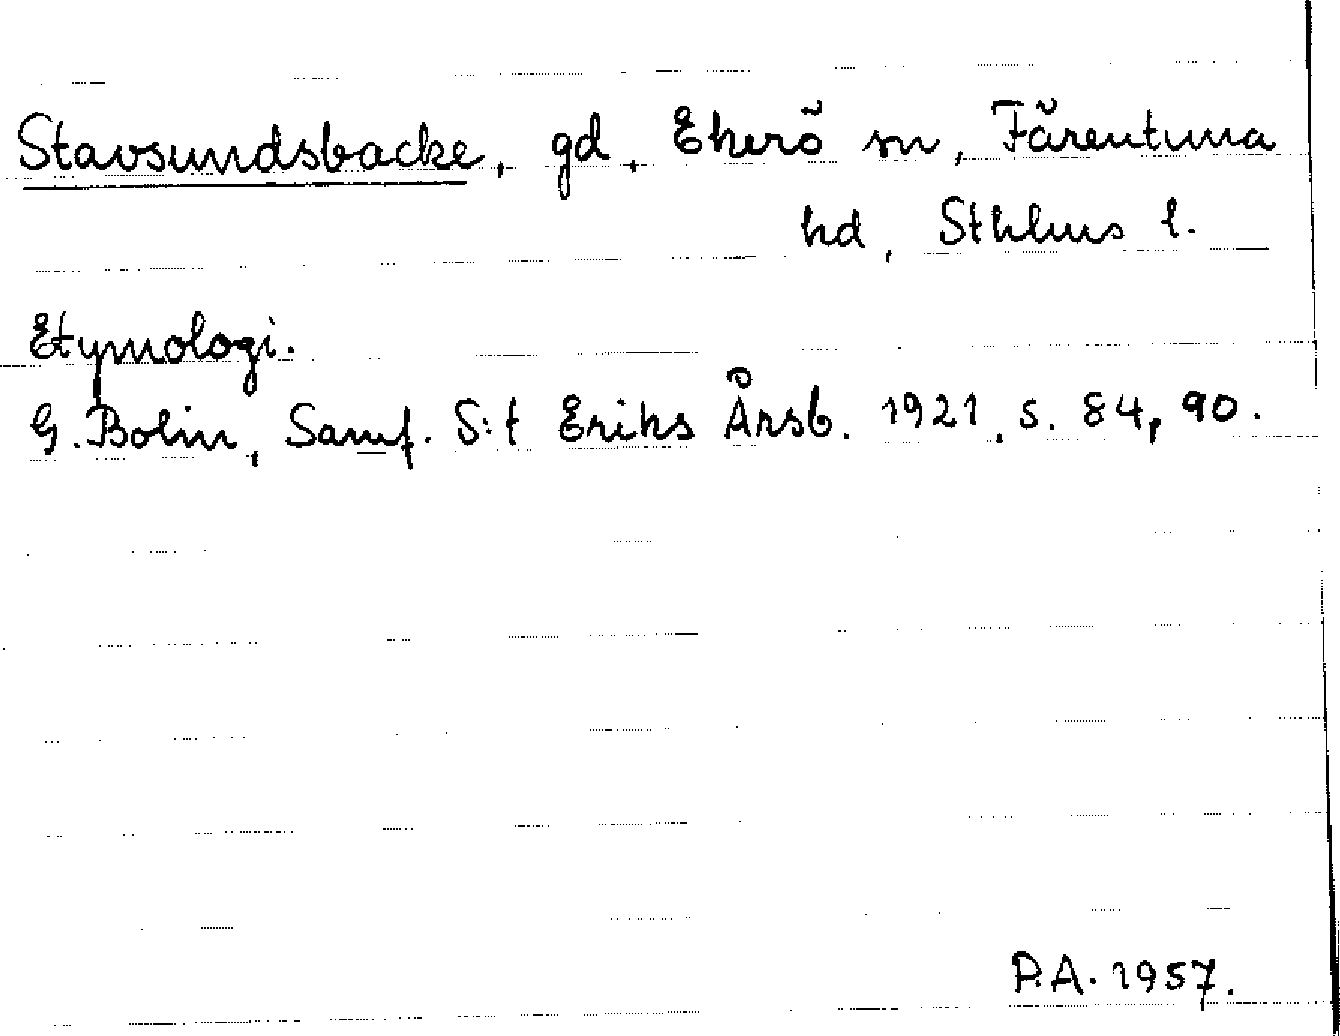 Stavsundsbacke, gd, Ekerö sn, Färentuna
hd, Sthlms l.
Etymologi.
G. Bolin, Samf. S:t Eriks Årsb. 1921, s. 84, 90.
P.A. 1957.